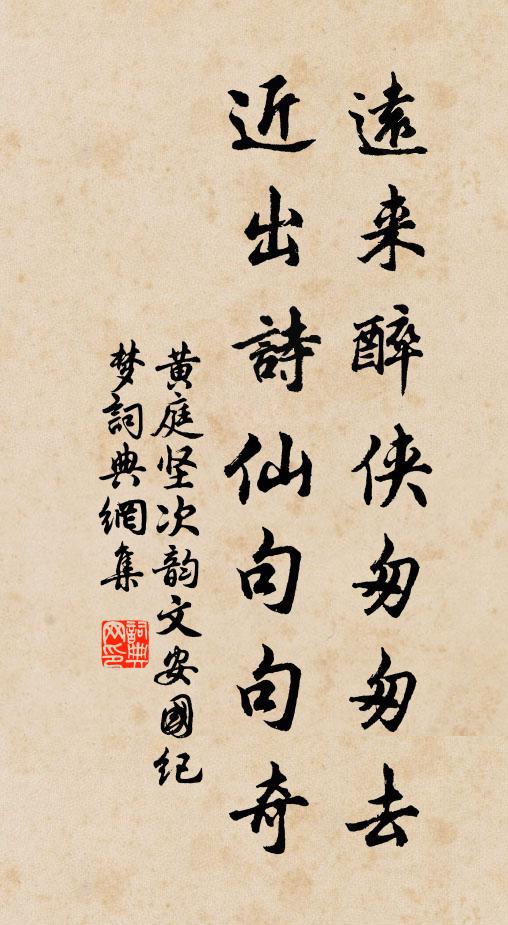 遠来醉侠匆匆去
近出詩仙句句奇
黄庭坚次韵文安國纪
梦詞典網集
詞典
网印